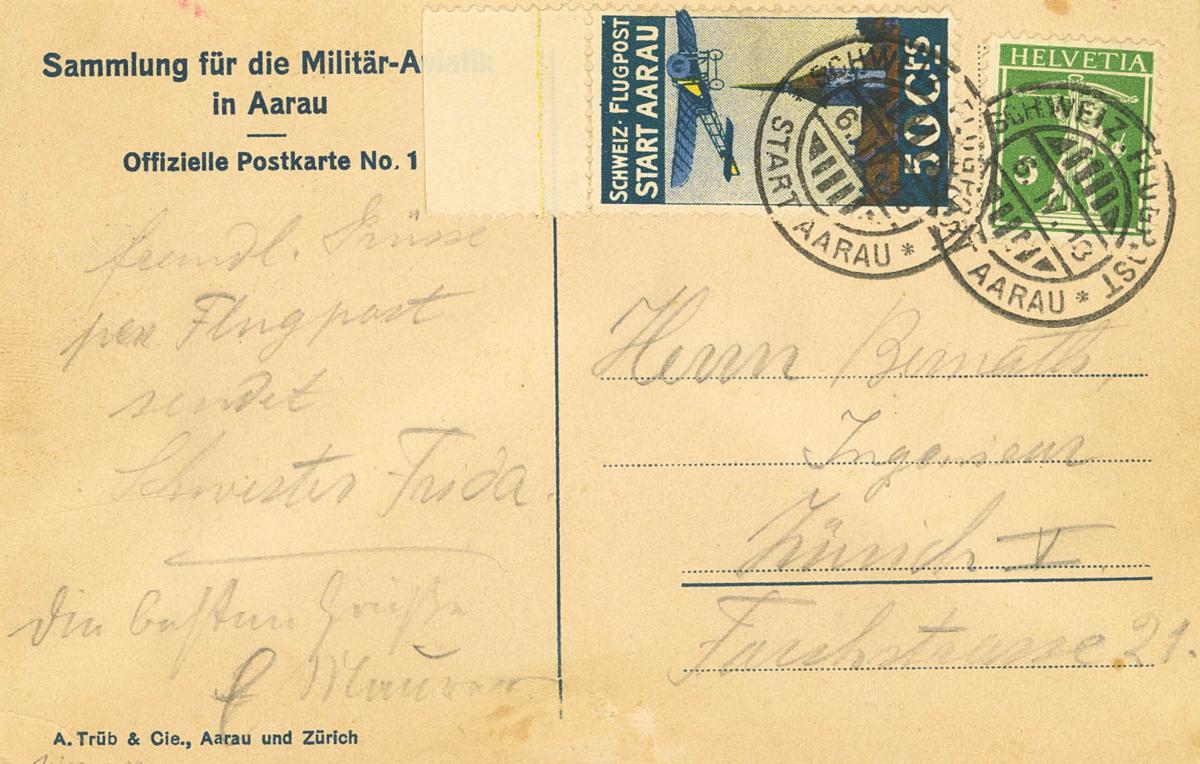 Sammlung für die Militär-A
in Aarau
Offizielle Postkarte No. 1
SCHWEIZ. FLUGPOST
START AARAU
50 CTS
HELVETIA
5
SCHWEIZ. FLUGPOST
START AARAU *
SCHWEIZ. FLUGPOST
START AARAU *
freundl. Grüsse
per Flugpost
sendet
Schwester Frida.
Die besten Grüße
Maurer
Herrn Bernath,
Ingenieur
Zürich V
Forchstrasse 21.
A. Trüb & Cie., Aarau und Zürich